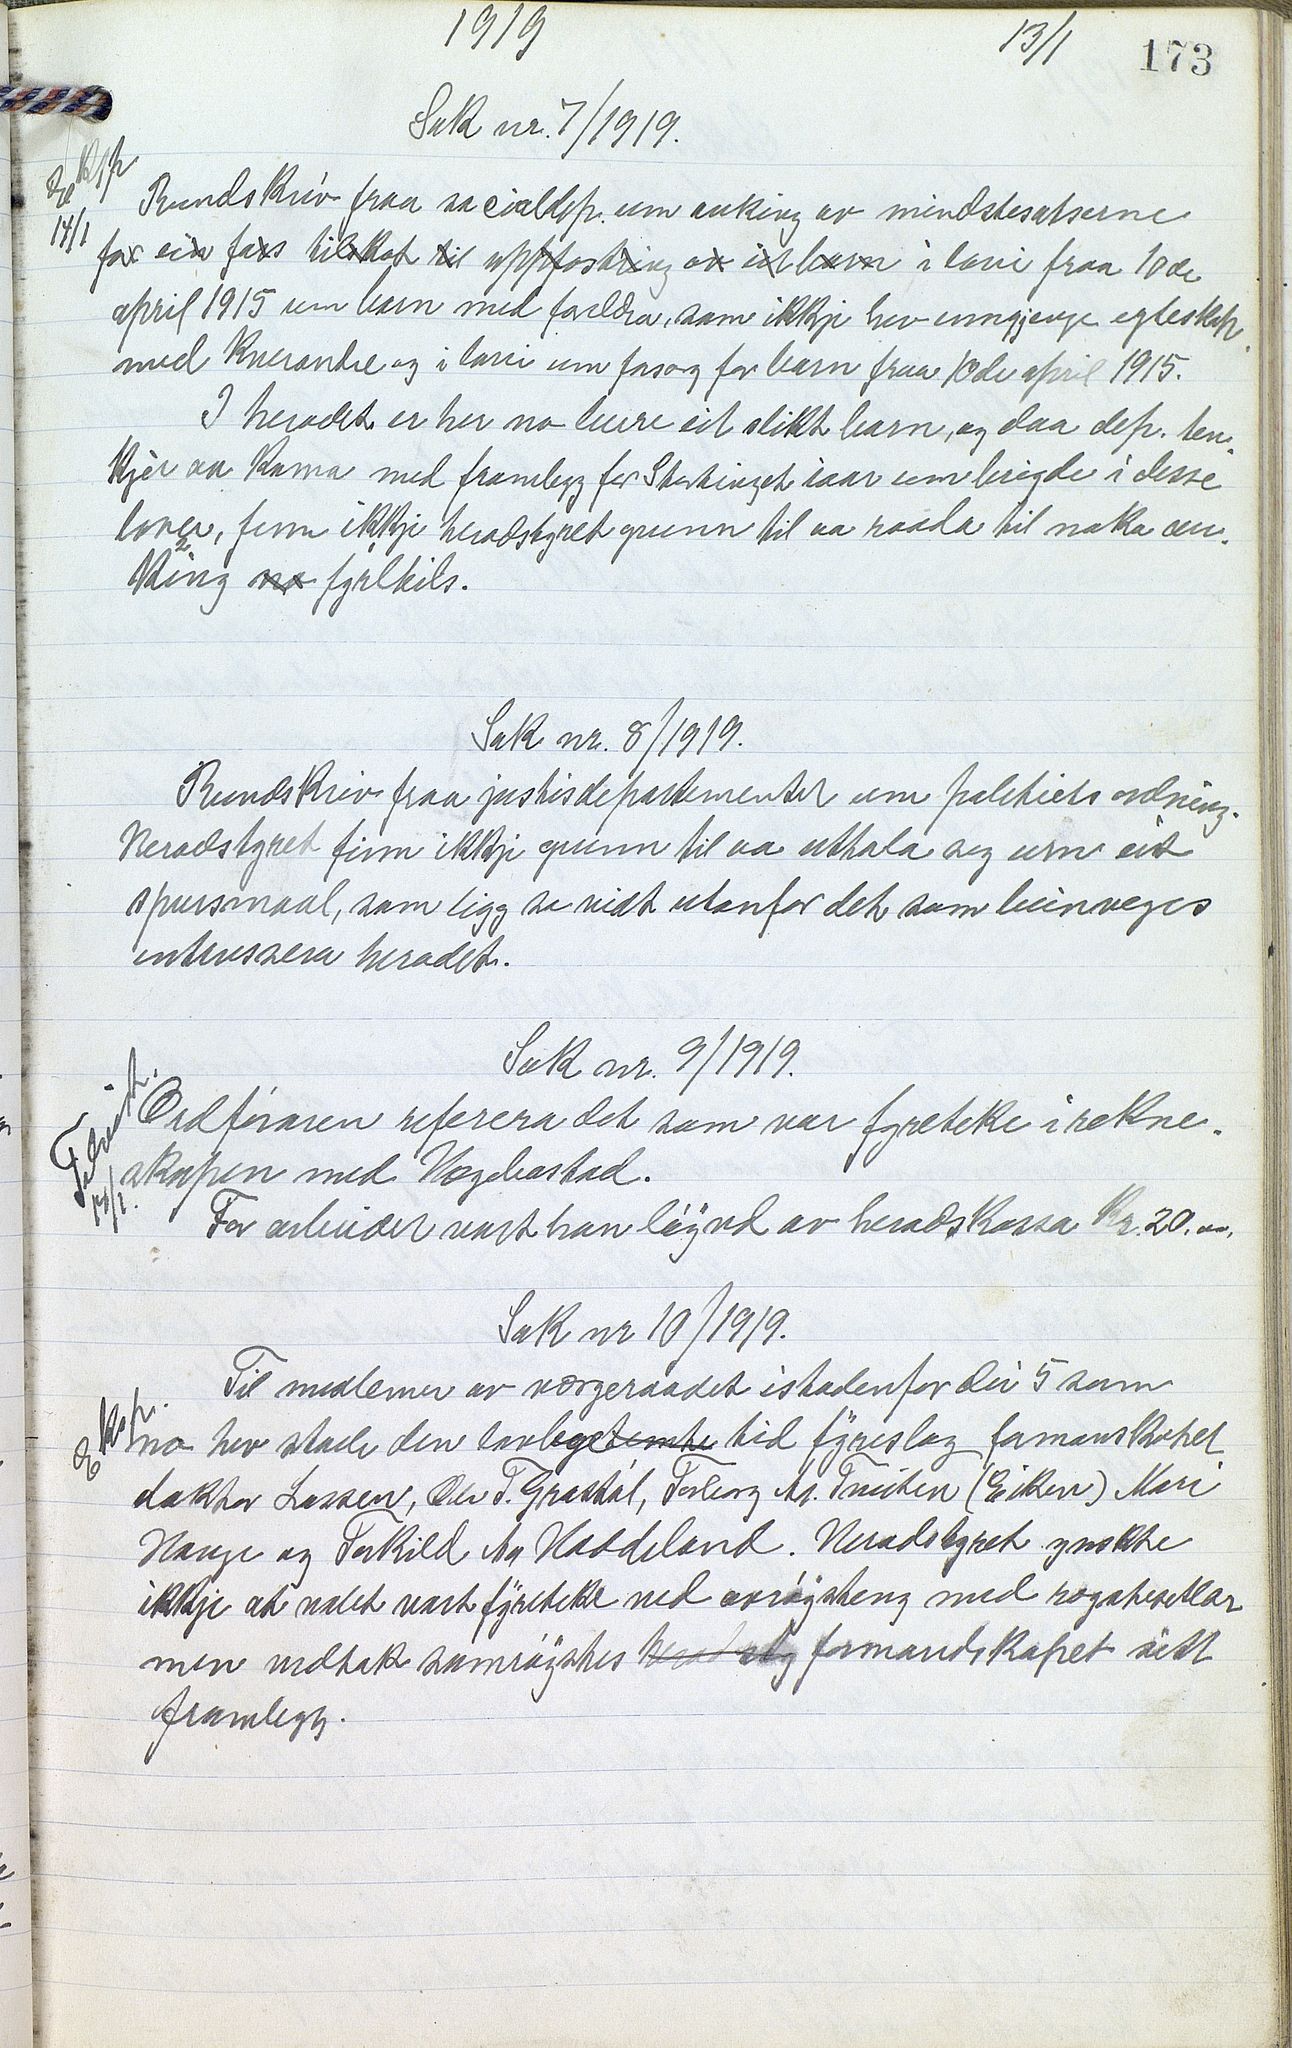 1919
13/1
173
Sak nr. 7/1919.
Ekspp
14/1
Rundskriv fraa socialdep. um auking av mindstesatserne
for ein fars tilskot til uppfostring av eit barn i lovi fraa 10de
april 1915 um barn med foreldra, som ikkje hev inngjenge egteskap
med kverandre og i lovi um fosorg for barn fraa 10de april 1915.
I heradet er her no berre eit slikt barn, og daa dep. ten-
kjer aa koma med framlegg for Stortinget iaar um brigde i desse
lover, finn ikkje heradstyret grunn til aa raada til noka au-
king no fyrebils.
Sak nr. 8/1919.
Rundskriv fraa justisdepartementet um politiets ordning.
Heradstyret finn ikkje grunn til aa uttala seg um eit
spursmaal, som ligg so vidt utanfor det som beinveges
interessera heradet.
Sak nr. 9/1919.
Utskrift.
14/1.
Ordføraren referera det som var fyreteke i rekne-
skapen med Høgebostad.
For arbeidet vart han løynd av heradskassa Kr. 20.00.
Sak nr 10/1919.
Eksp.
Til medlemer av vergeraadet istadenfor dei 5 som
no hev stade den lovbegetemte tid fyreslog formanskapet
doktor Lassen, Ola T. Grastøl, Torborg M. Tveiten (Eiken) Mari
Hauge og Torkild Aa Haddeland. Heradstyret ynskte
ikkje at valet vart fyreteke ved avrøysteng med røystesetlar
men vedtok samrøystes formandskapet sitt
framlegg.